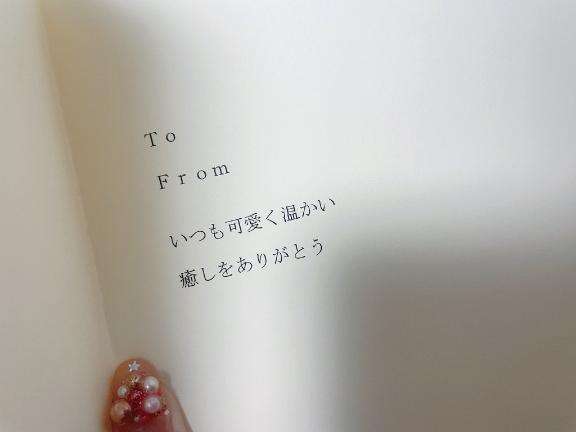 To
From
いつも可愛く温かい
癒しをありがとう